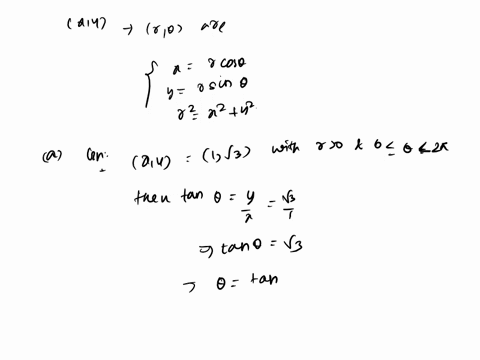 (x,y) → (r,θ) are
x = r cosθ
y = r sin θ
r² = x²+y²
(a) (x,y) = (1,√3) with r>0 & 0 ≤ θ < 2π
then tan θ = y/x = √3/1
⇒ tanθ = √3
⇒ θ = tan